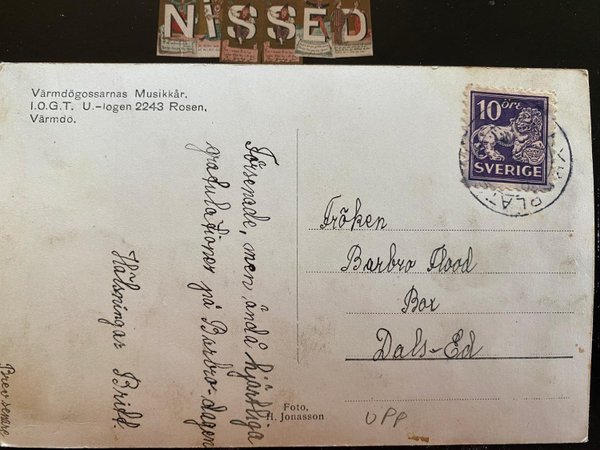 NiSSED
Värmdögossarnas Musikkår.
I.O.G.T. U.-logen 2243 Rosen,
Värmdö.
10 öre
SVERIGE
Försenade, men ändå hjärtliga
gratulationer på Barbro-dagen
Hälsningar Britt.
Brev senare
Fröken
Barbro Flood
Box
Dals-Ed
Foto.
H. Jonasson
UPP